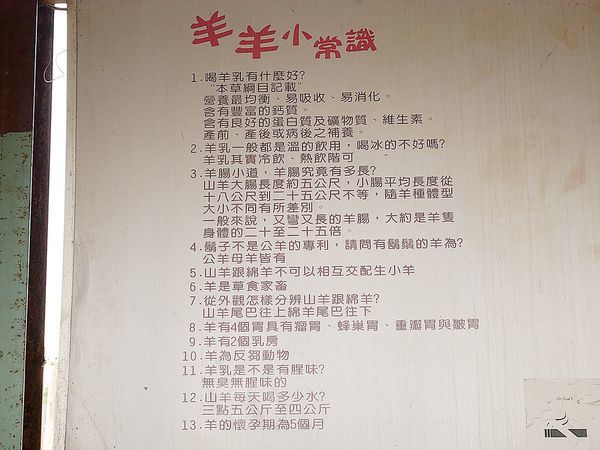 羊羊小常識
1.喝羊乳有什麼好?
"本草綱目記載"
營養最均衡、易吸收、易消化。
含有豐富的鈣質。
含有良好的蛋白質及礦物質、維生素。
產前、產後或病後之補養。
2.羊乳一般都是溫的飲用，喝冰的不好嗎?
羊乳其實冷飲、熱飲階可
3.羊腸小道，羊腸究竟有多長?
山羊大腸長度約五公尺，小腸平均長度從
十八公尺到二十五公尺不等，隨羊種體型
大小不同有所差別。
一般來說，又彎又長的羊腸，大約是羊隻
身體的二十至二十五倍。
4.鬍子不是公羊的專利，請問有鬍鬚的羊為?
公羊母羊皆有
5.山羊跟綿羊不可以相互交配生小羊
6.羊是草食家畜
7.從外觀怎樣分辨山羊跟綿羊?
山羊尾巴往上綿羊尾巴往下
8.羊有4個胃具有瘤胃、蜂巢胃、重瓣胃與皺胃
9.羊有2個乳房
10.羊為反芻動物
11.羊乳是不是有腥味?
無臭無腥味的
12.山羊每天喝多少水?
三點五公斤至四公斤
13.羊的懷孕期為5個月